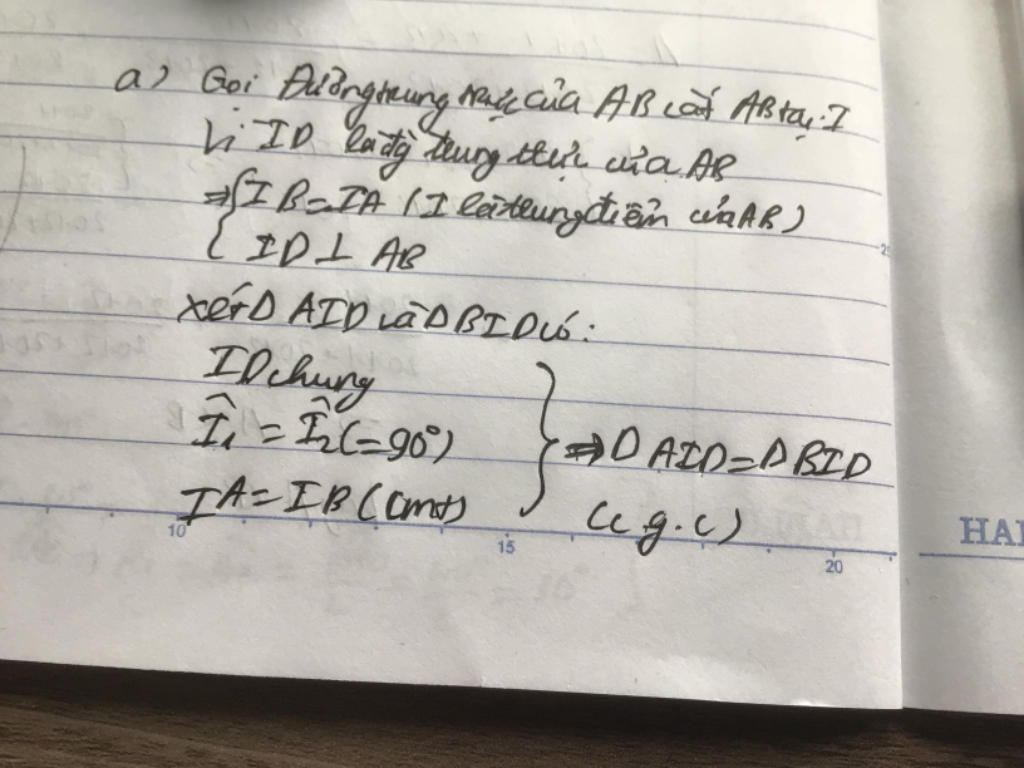 a) Gọi Đường trung trực của AB cắt AB tại I
Vì ID là đg trung trực của AB
⇒{ IB = IA (I là trung điểm của AB)
{ ID ⊥ AB
xét Δ AID và Δ BID có:
ID chung
Î₁ = Î₂ (= 90°)
IA = IB (cmt)
} ⇒ Δ AID = Δ BID
(c.g.c)
10 15 20
HAI